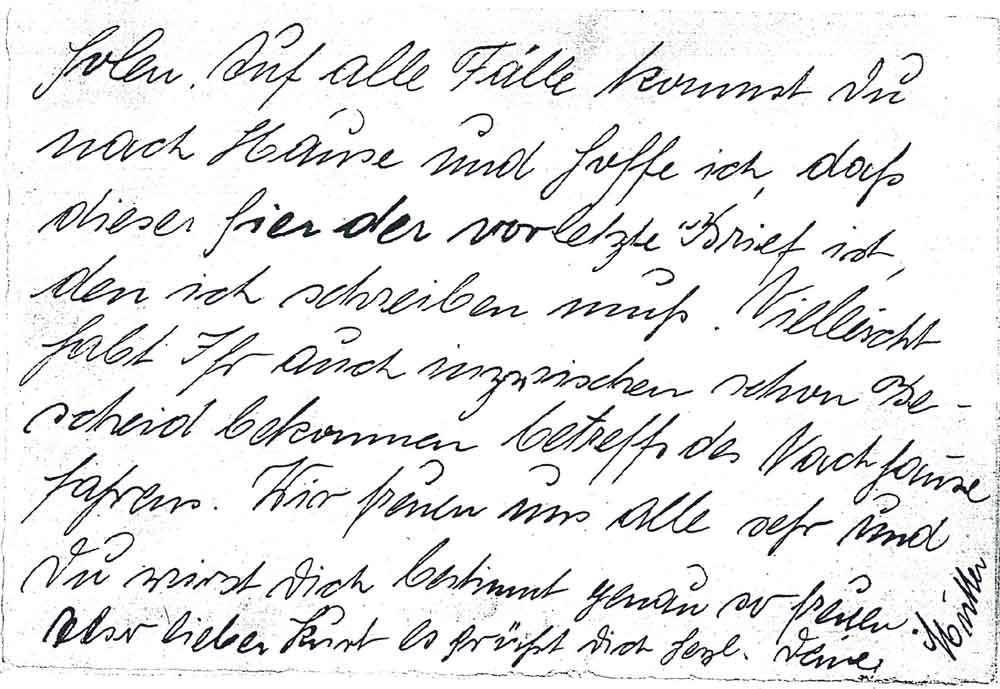 holen. Auf alle Fälle kommst Du
nach Hause und hoffe ich, daß
dieser hier der vorletzte Brief ist,
den ich schreiben muß. Vielleicht
habt Ihr auch inzwischen schon Be-
scheid bekommen betreffs des Nachhause
fahrens. Wir freuen uns alle sehr und
Du wirst Dich bestimmt genau so freuen.
Also lieber Kurt es grüßt Dich herzl. Deine
Mutter